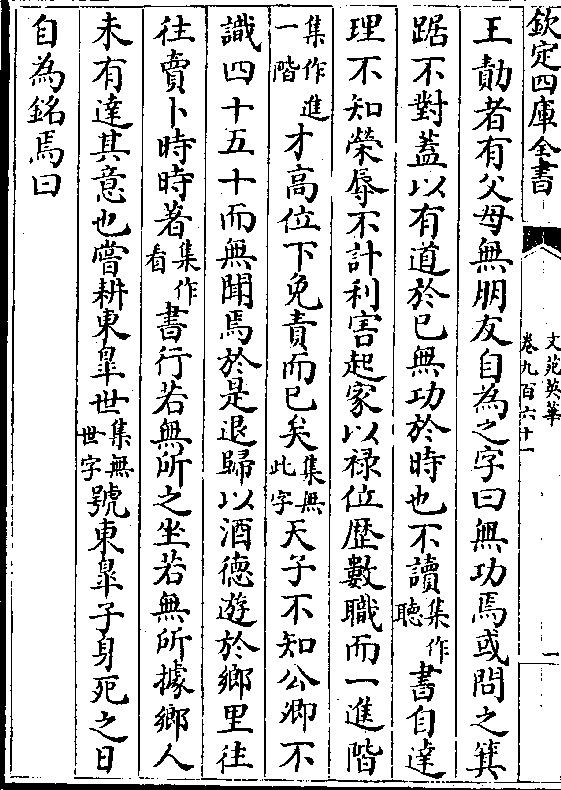 欽定四庫全書
文苑英華
卷九百六十一
一
王勣者有父母無朋友自為之字曰無功焉或問之箕
踞不對蓋以有道於已無功於時也不讀集作聽書自達
理不知榮辱不計利害起家以禄位歴數職而一進階
集作進一階才高位下免責而已矣集無此字天子不知公卿不
識四十五十而無聞焉於是退歸以酒徳遊於鄉里往
往賣卜時時著集作看書行若無所之坐若無所據鄉人
未有達其意也嘗耕東臯世集無世字號東臯子身死之日
自為銘焉曰